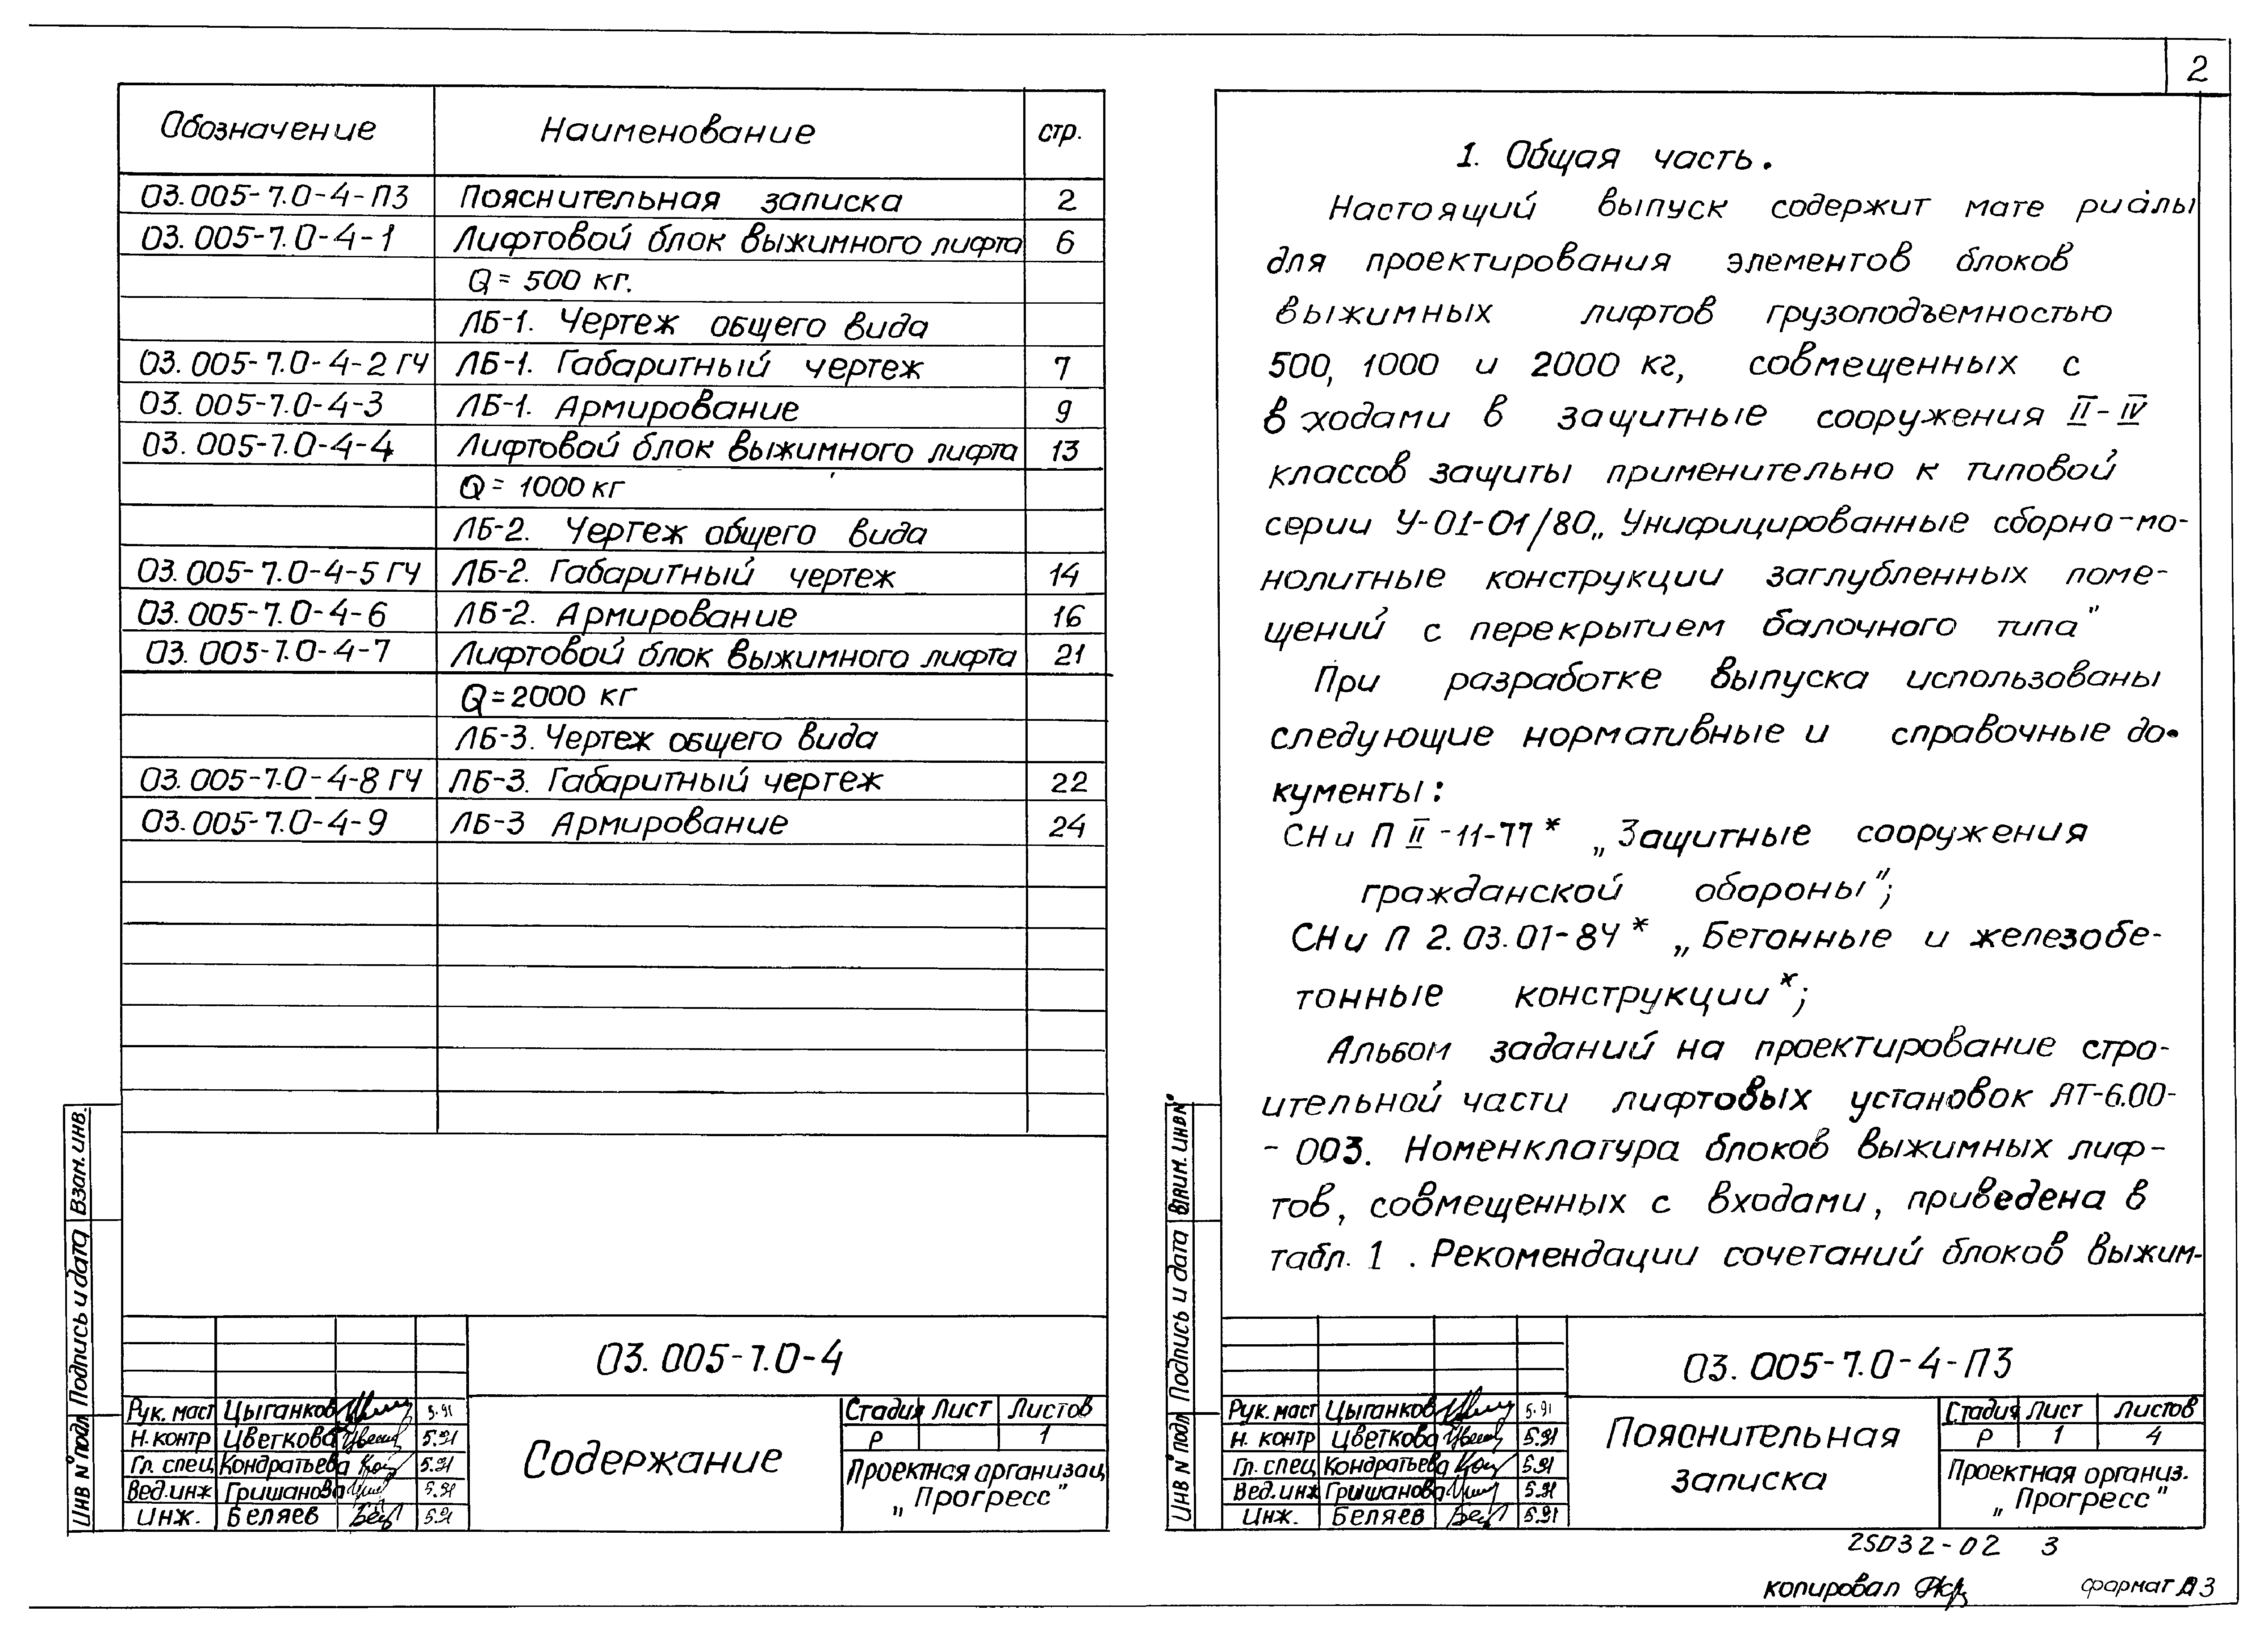 2
Обозначение Наименование стр.
03.005-7.0-4-ПЗ Пояснительная записка 2
03.005-7.0-4-1 Лифтовой блок выжимного лифта 6
Q = 500 кг.
ЛБ-1. Чертеж общего вида
03.005-7.0-4-2 ГЧ ЛБ-1. Габаритный чертеж 7
03.005-7.0-4-3 ЛБ-1. Армирование 9
03.005-7.0-4-4 Лифтовой блок выжимного лифта 13
Q = 1000 кг
ЛБ-2. Чертеж общего вида
03.005-7.0-4-5 ГЧ ЛБ-2. Габаритный чертеж 14
03.005-7.0-4-6 ЛБ-2. Армирование 16
03.005-7.0-4-7 Лифтовой блок выжимного лифта 21
Q = 2000 кг
ЛБ-3. Чертеж общего вида
03.005-7.0-4-8 ГЧ ЛБ-3. Габаритный чертеж 22
03.005-7.0-4-9 ЛБ-3 Армирование 24
Взам. инв.
Подпись и дата
Инв N° подл
03.005-7.0-4
Рук. маст Цыганков 5.91
Н. контр Цветкова 5.91
Гл. спец Кондратьева 5.91
Вед. инж Гришанова 5.91
Инж. Беляев 5.91
Содержание
Стадия Лист Листов
Р 1
Проектная организац
„Прогресс"
1. Общая часть.
Настоящий выпуск содержит материалы
для проектирования элементов блоков
выжимных лифтов грузоподъемностью
500, 1000 и 2000 кг, совмещенных с
входами в защитные сооружения II-IV
классов защиты применительно к типовой
серии У-01-01/80 „Унифицированные сборно-мо-
нолитные конструкции заглубленных поме-
щений с перекрытием балочного типа"
При разработке выпуска использованы
следующие нормативные и справочные до-
кументы:
СНиП II-11-77* „Защитные сооружения
гражданской обороны";
СНиП 2.03.01-84* „Бетонные и железобе-
тонные конструкции*;
Альбом заданий на проектирование стро-
ительной части лифтовых установок АТ-6.00-
-003. Номенклатура блоков выжимных лиф-
тов, совмещенных с входами, приведена в
табл. 1. Рекомендации сочетаний блоков выжим-
Взам. инв. N°
Подпись и дата
Инв N° подл
03.005-7.0-4-ПЗ
Рук. маст Цыганков 5.91
Н. контр Цветкова 5.91
Гл. спец Кондратьева 5.91
Вед. инж Гришанова 5.91
Инж. Беляев 5.91
Пояснительная
записка
Стадия Лист Листов
Р 1 4
Проектная организ.
„Прогресс"
25032-02 3
копировал формат А3